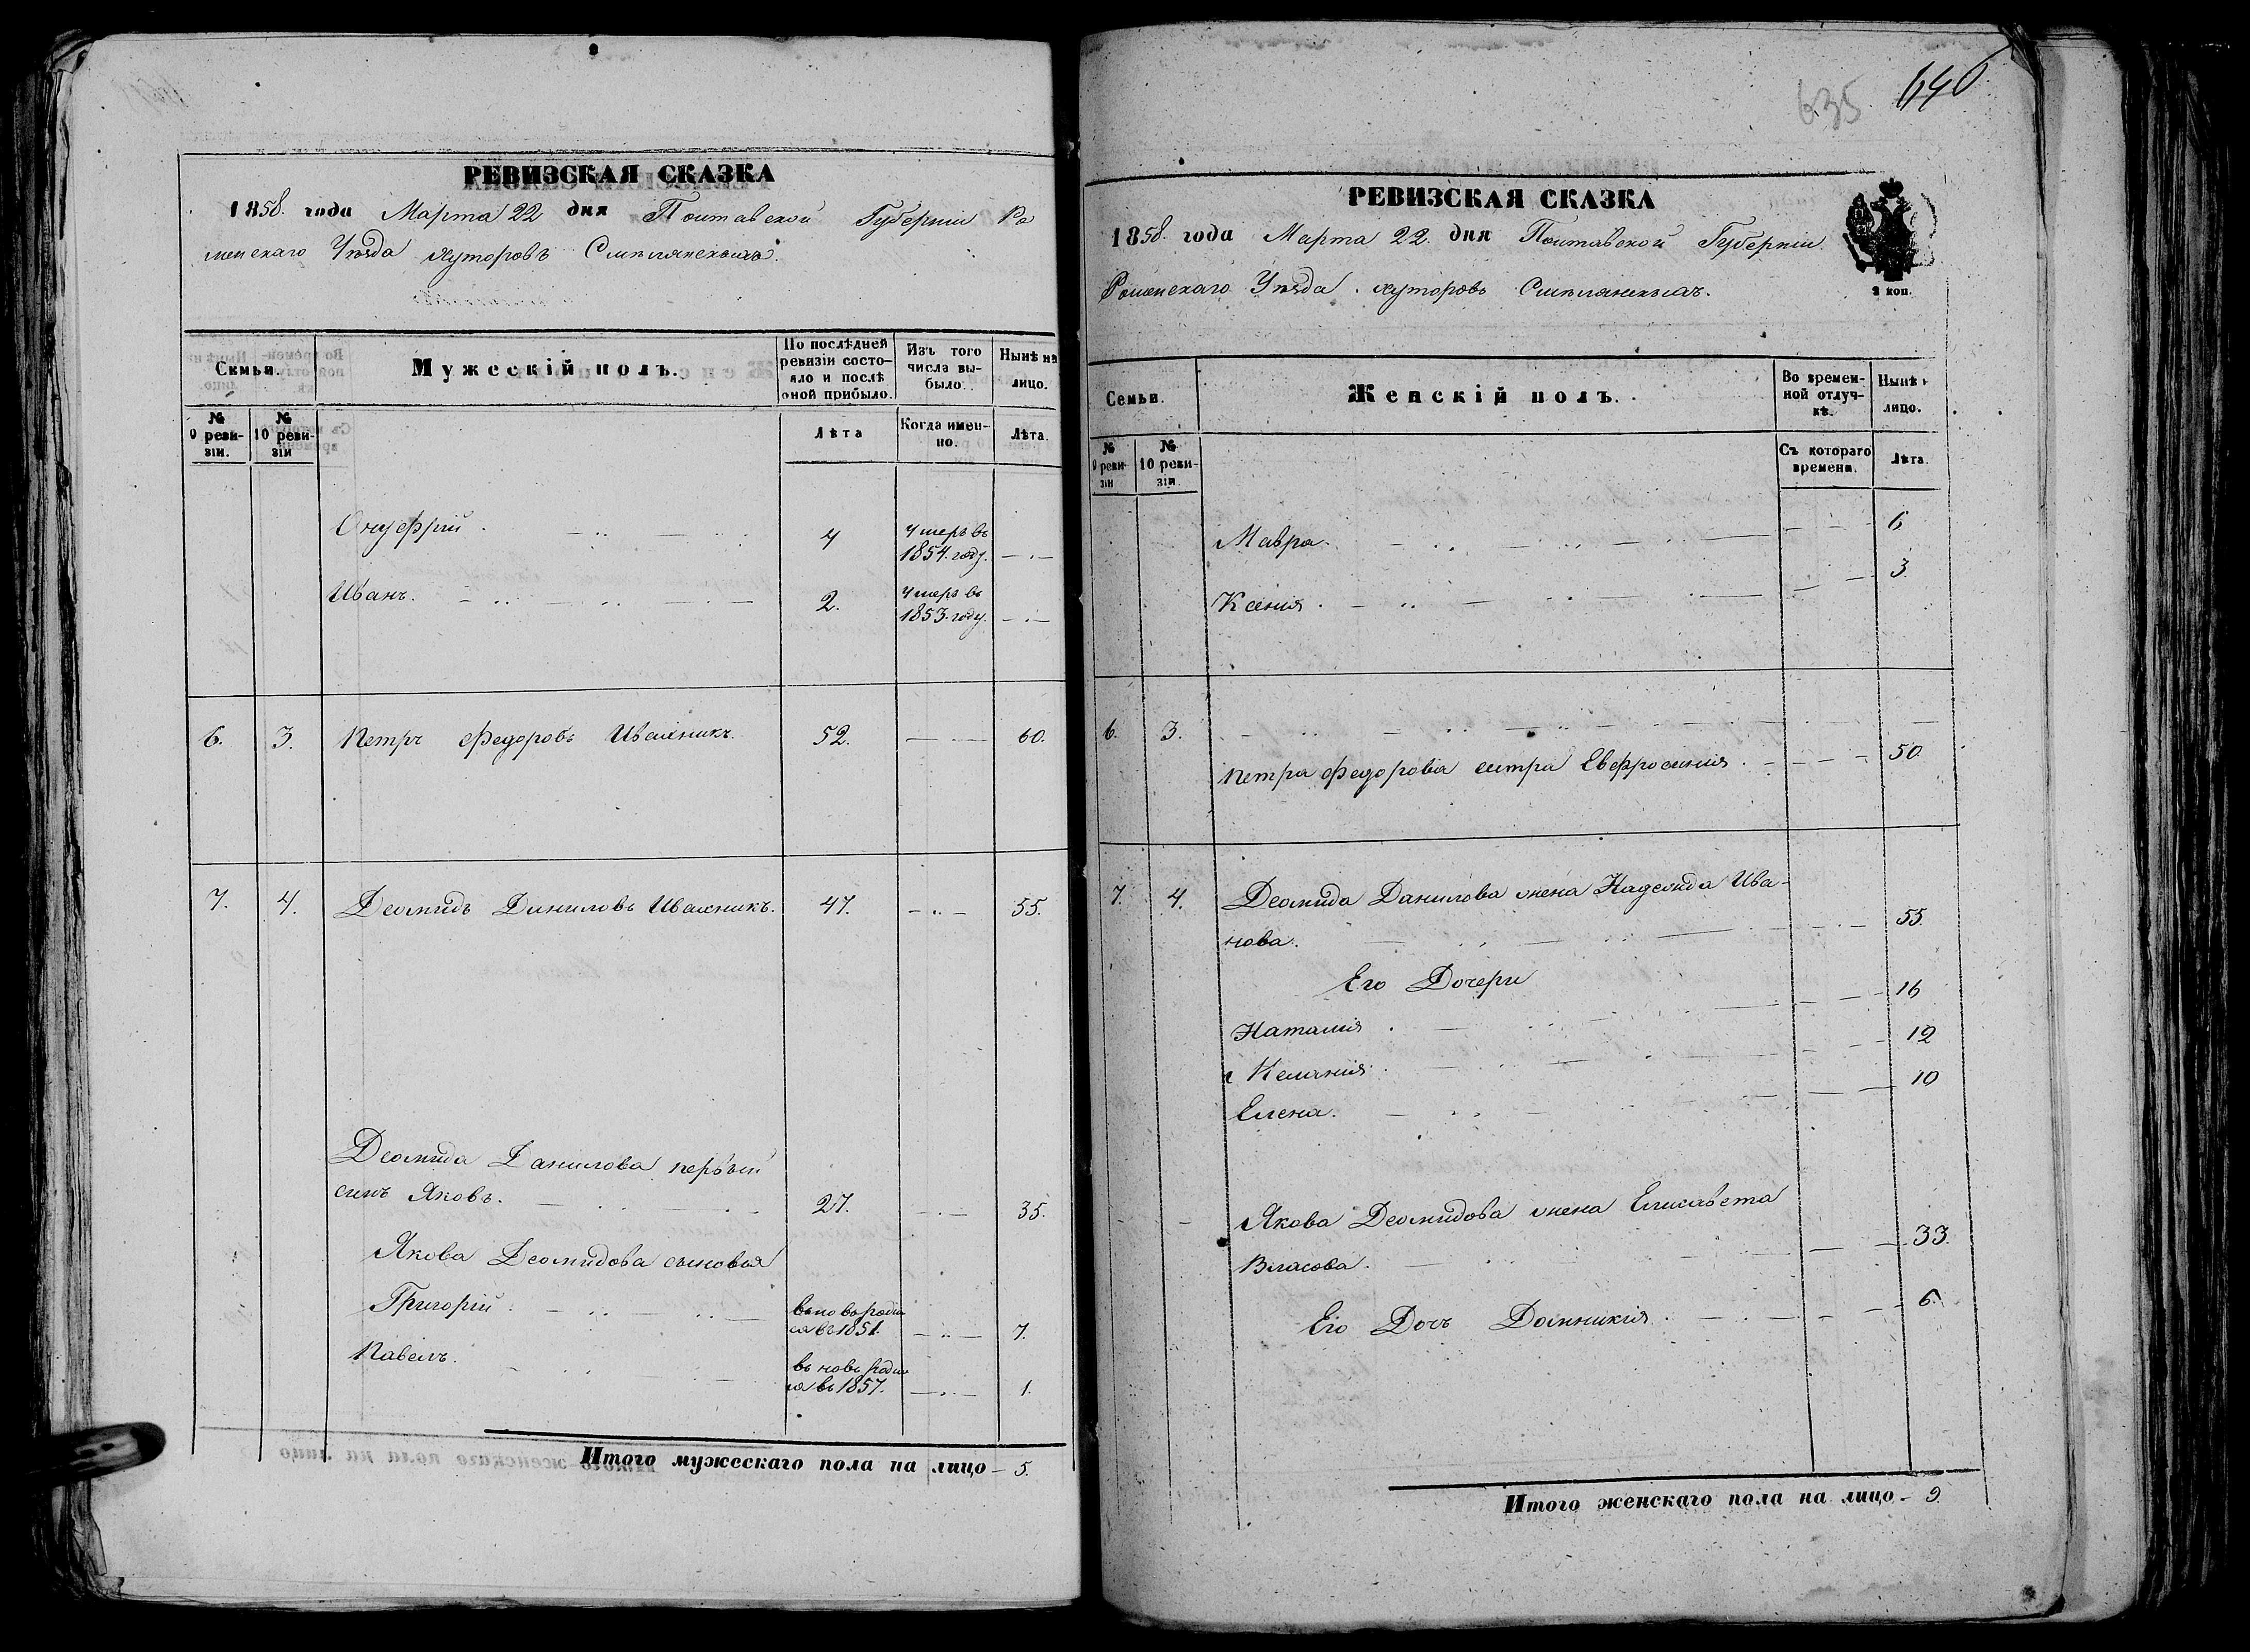 РЕВИЗСКАЯ СКАЗКА
1858. года Марта 22 дня Полтавской Губерніи Ро
менскаго Уѣзда хуторовъ
Семьи.
Мужескій полъ.
По послѣдней
ревизіи состо-
яло и послѣ
оной прибыло.
Изъ того
числа вы-
было.
Нынѣ на
лицо.
№
9 реви-
зіи.
№
10 реви-
зіи
Лѣта
Когда имен-
но.
Лѣта.
Онуфрій. 4 Умеръ въ
1854. году.
Иванъ. 2. Умеръ въ
1853. году.
6. 3. Петръ Федоровъ Ивахникъ. 52. 60.
7. 4. Деомидъ Даниловъ Ивахникъ. 47. 55.
Деомида Данилова первый
сынъ Яковъ. 27. 35.
Якова Деомидова сыновья
Григорій. вьновь родил
ся въ 1851. 7.
Павелъ. вь новь родил
ся въ 1857. 1.
Итого мужескаго пола на лицо - 5.
635 640
РЕВИЗСКАЯ СКАЗКА
1858. года Марта 22. дня Полтавской Губерніи
Роменскаго Уѣзда. хуторовь
2 коп.
Семьи.
Женскій полъ.
Во времен-
ной отлуч-
кѣ.
Нынѣ н
лицо.
№
9 реви-
зіи
№
10 реви-
зіи.
Съ котораго
времени.
Лѣта.
Мавра. 6
Ксенія. 3.
6. 3.
Петра Федорова сестра Евфросинія. 50
7. 4. Деомида Данилова жена Надежда Ива-
нова. 55.
Его Дочери
Наталія. 16
Меланія. 12
Елена. 10
Якова Деомидова жена Елисавета
Власова. 33.
Его Дочь Домникія. 6.
Итого женскаго пола на лицо - 9